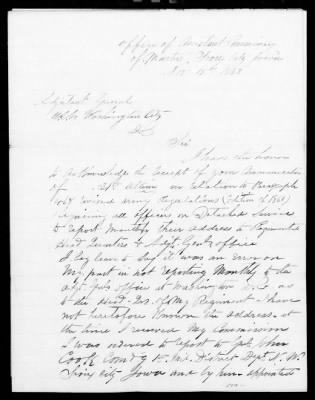 Office of Assistant Commissary
of Muster, Sioux City Iowa
Nov 18th 1863
Adjutant General
U.S.A. Washington City
D.C.
Sir
I have the honor
to acknowledge the receipt of your communication
of 21st ultimo in relation to Paragraph
467 revised Army Regulations (Edition of 1861)
requiring all officers on Detached Service
to report Monthly their address to Regimental
Head Quarters & Adjt Genl's office
I beg leave to say it was an error on
My part in not reporting Monthly to the
Adjt Genl's office at Washington D.C. as
to the Head Qrs. of My Regiment I have
not heretofore known the address. at
the time I received My Commission
I was ordered to report to Genl John
Cook Comd'g 1st Mil. District Dept N. W.
Sioux City Iowa and by him appointed